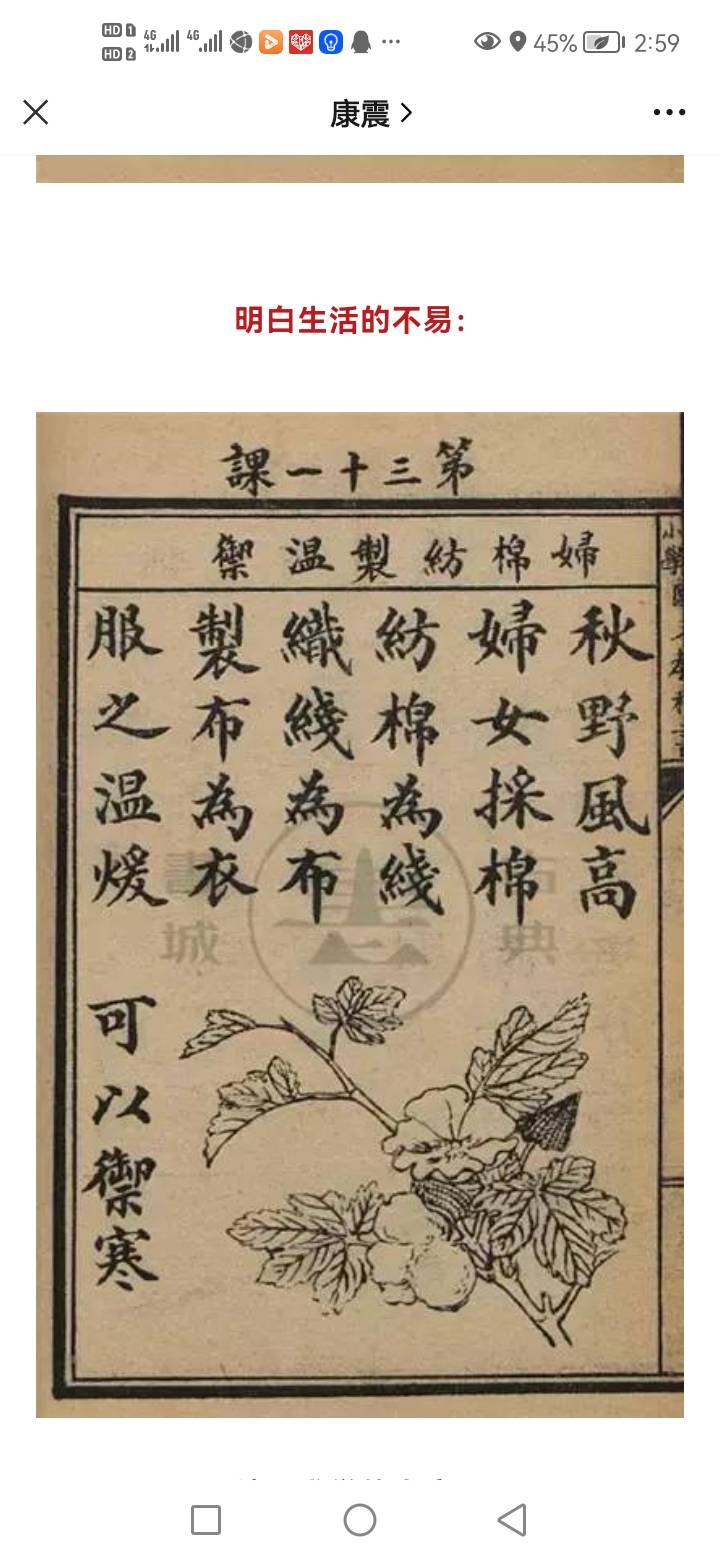 HD 1 4G 4G 45% 2:59
HD 2
康震
明白生活的不易：
第三十一課
婦棉紡製温禦
秋野風高
婦女採棉
紡棉為綫
織綫為布
製布為衣
服之温煖
可以禦寒
書城
古典